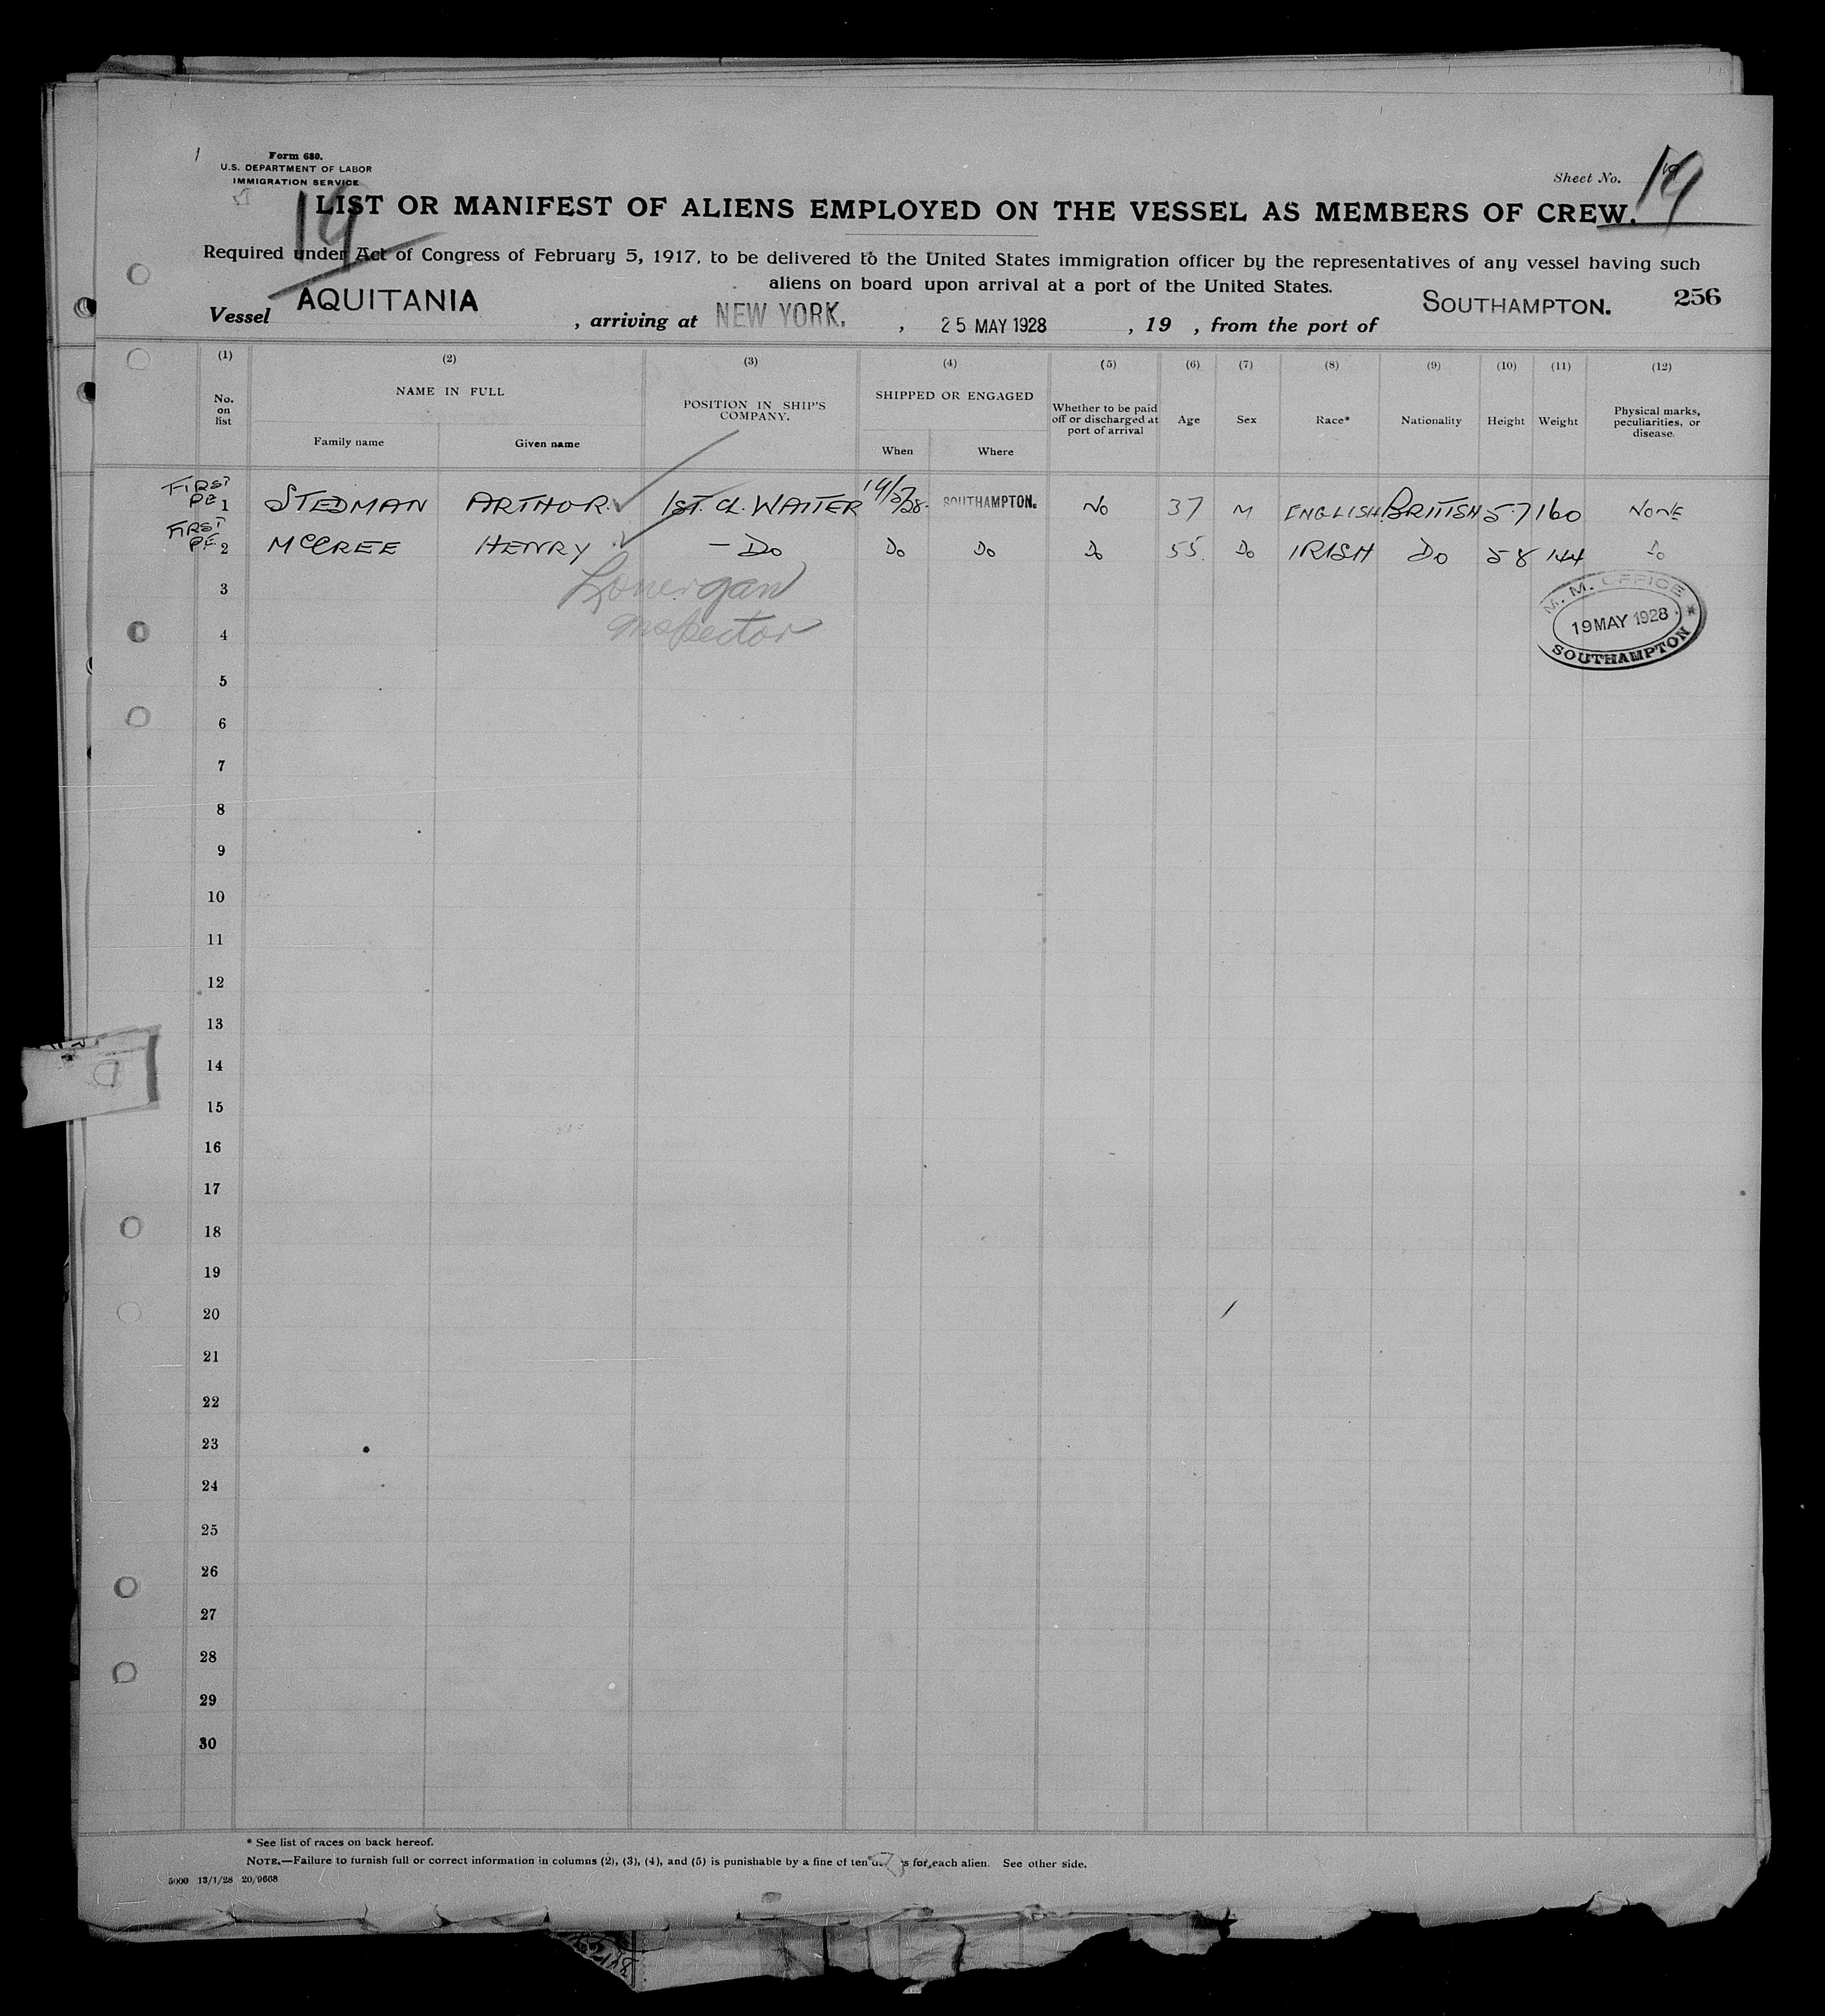 Form 680.
U.S. DEPARTMENT OF LABOR
IMMIGRATION SERVICE
Sheet No. 19
19
LIST OR MANIFEST OF ALIENS EMPLOYED ON THE VESSEL AS MEMBERS OF CREW.
Required under Act of Congress of February 5, 1917, to be delivered to the United States immigration officer by the representatives of any vessel having such
aliens on board upon arrival at a port of the United States.
Vessel AQUITANIA , arriving at NEW YORK. , 25 MAY 1928 , 19 , from the port of SOUTHAMPTON. 256
(1) (2) (3) (4) (5) (6) (7) (8) (9) (10) (11) (12)
No. on list
NAME IN FULL
Family name
Given name
POSITION IN SHIP'S COMPANY.
SHIPPED OR ENGAGED
When
Where
Whether to be paid off or discharged at port of arrival
Age
Sex
Race*
Nationality
Height
Weight
Physical marks, peculiarities, or disease.
FIRST
1 STEDMAN ARTHUR. 1ST. CL. WAITER SOUTHAMPTON. NO 37 M ENGLISH BRITISH 5.7 160 NONE
FIRST
2 McCREE HENRY - Do Do Do Do 55. Do IRISH Do 5 8 144 Do
3 Lonergan
4 Inspector
M. M. OFFICE
19 MAY 1928
SOUTHAMPTON
5
6
7
8
9
10
11
12
13
14
15
16
17
18
19
20
21
22
23
24
25
26
27
28
29
30
* See list of races on back hereof.
NOTE.—Failure to furnish full or correct information in columns (2), (3), (4), and (5) is punishable by a fine of ten for each alien. See other side.
5000 13/1/28 20/9668